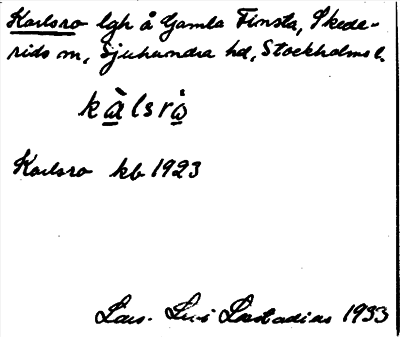 Karlsro lgh å Gamla Finsta, Skede-
rids sn, Sjuhundra hd, Stockholms l.
kàlsrò
Karlsro kb 1923
Lars Levi Læstadius 1933